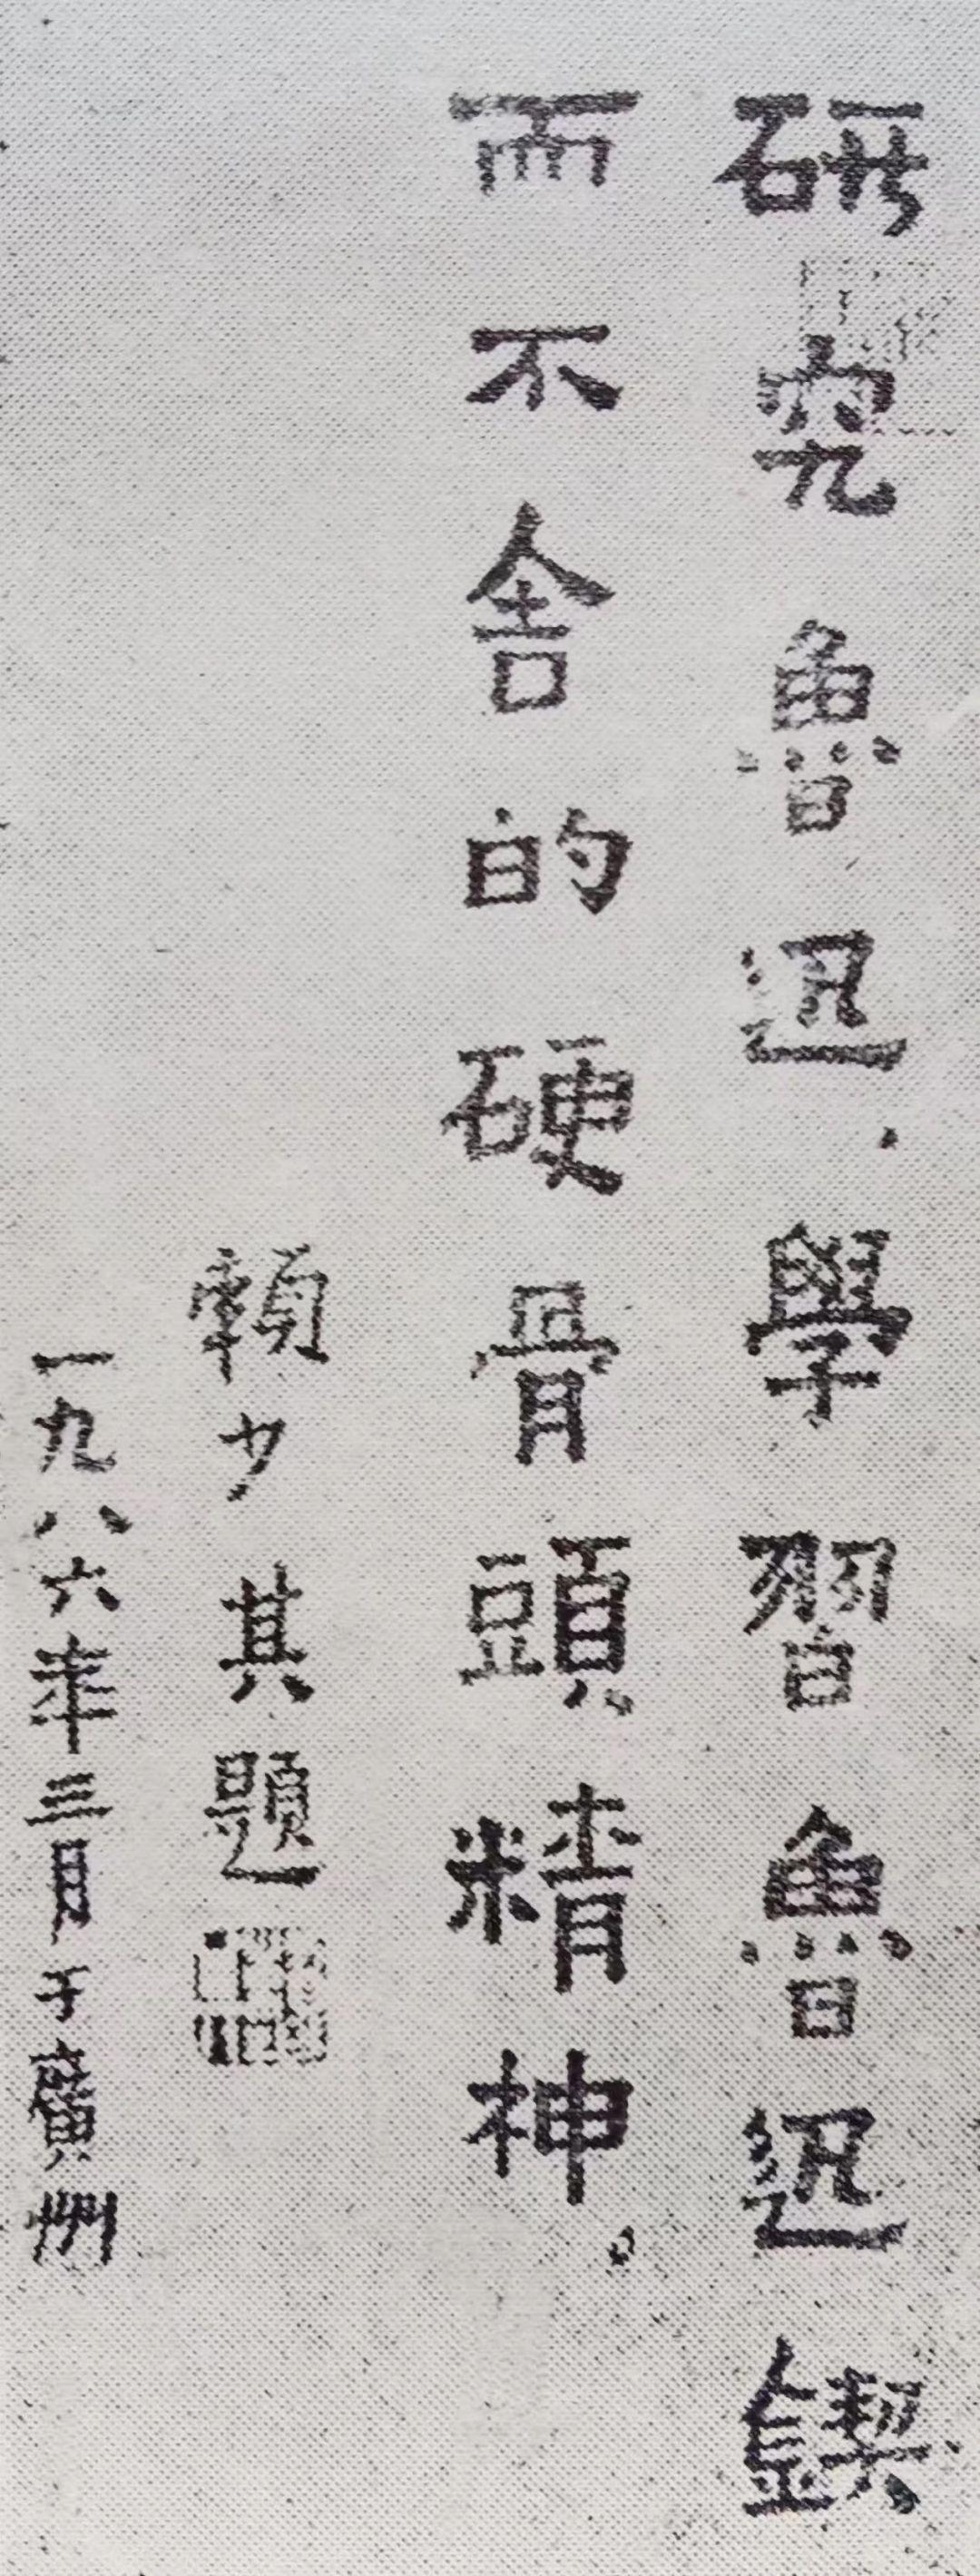 研究魯迅.學習魯迅鍥
而不舍的硬骨頭精神。
賴少其題
一九八六年三月于廣州